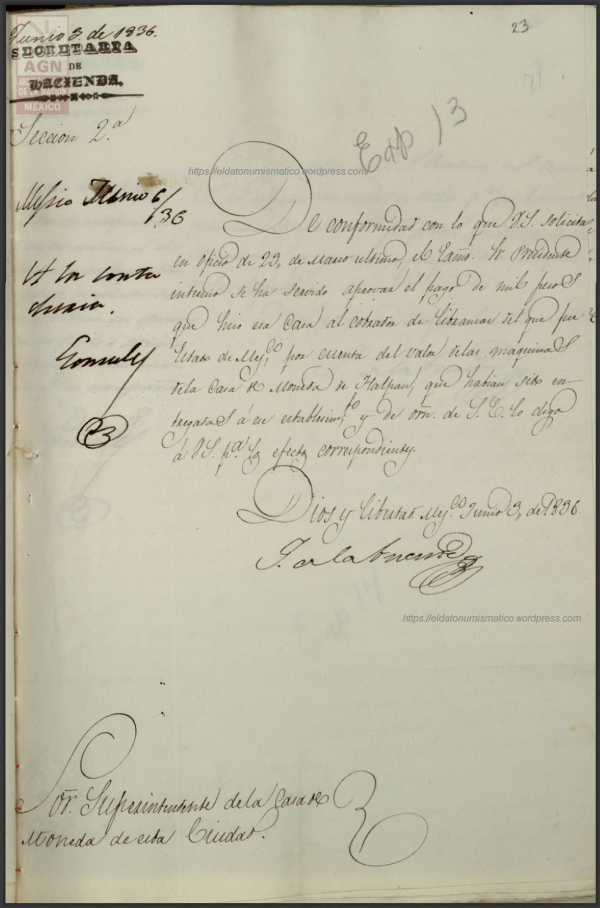 Junio 3. de 1836.
23
SECRETARIA
DE
HACIENDA.
AGN
MÉXICO
Seccion 2.a
Exp 13
https://eldatonumismatico.wordpress.com
Mejico Junio 6/
836
A la conta
duria.
De conformidad con lo que V.S. solicita
en oficio de 23, de Marzo ultimo, el Exmo. Sr. Presidente
interino se ha servido aprovar el pago de mil pesos
que hizo esa Casa al cobrador de libranzas del que fue
Estado de Mej.co por cuenta del valor de las maquinas
de la Casa de Moneda de Tlalpan, que habian sido en-
tregadas á ese establecim.to y de orn. de S.E. lo digo
á V.S. p.a los efectos correspondientes.
Dios y libertad Mej.co Junio 3, de 1836.
https://eldatonumismatico.wordpress.com
Sor. Superintendente de la Casa de
Moneda de esta Ciudad.